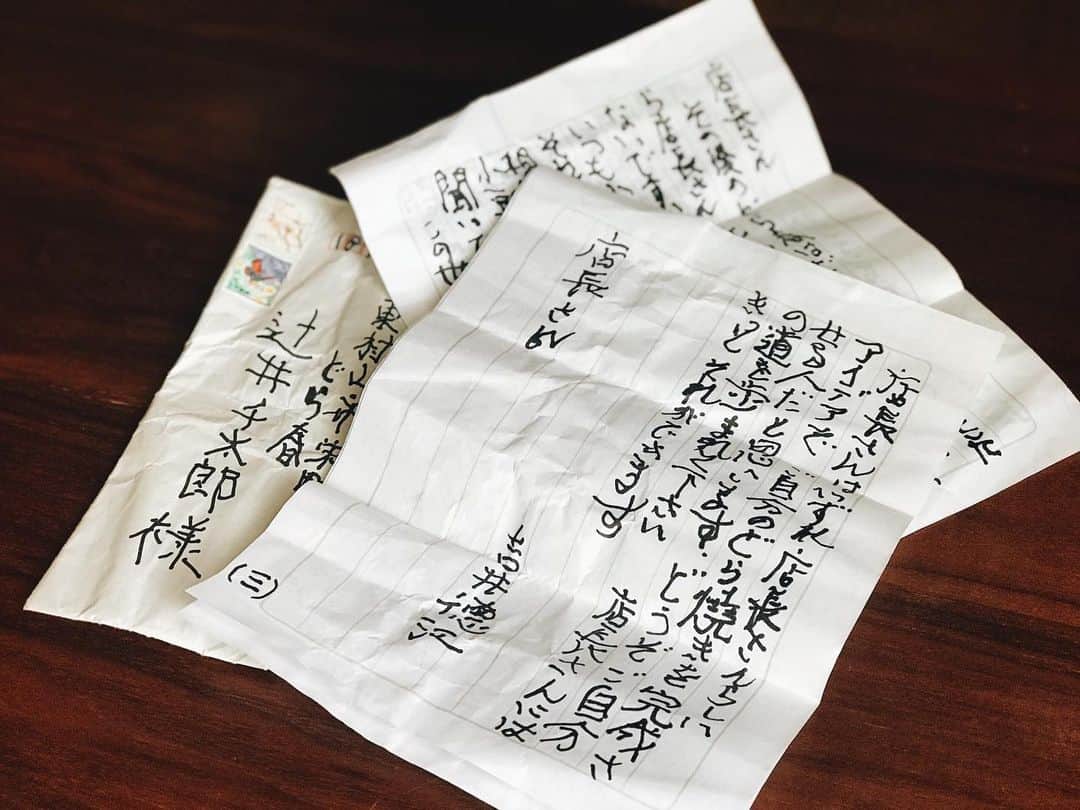 店長さん
その後の
ら店長さん
ないです
いつも
聞いて
この世
店長さんはいずれ、店長さんらしい
アイデアで ご自分のどら焼きを完成さ
せる人だと思います。どうぞご自分
の道を歩まれて下さい 店長さんには
きっと それができます
吉井徳江
店長さん
(三)
東村山市栄町
どら春
辻井千太郎様